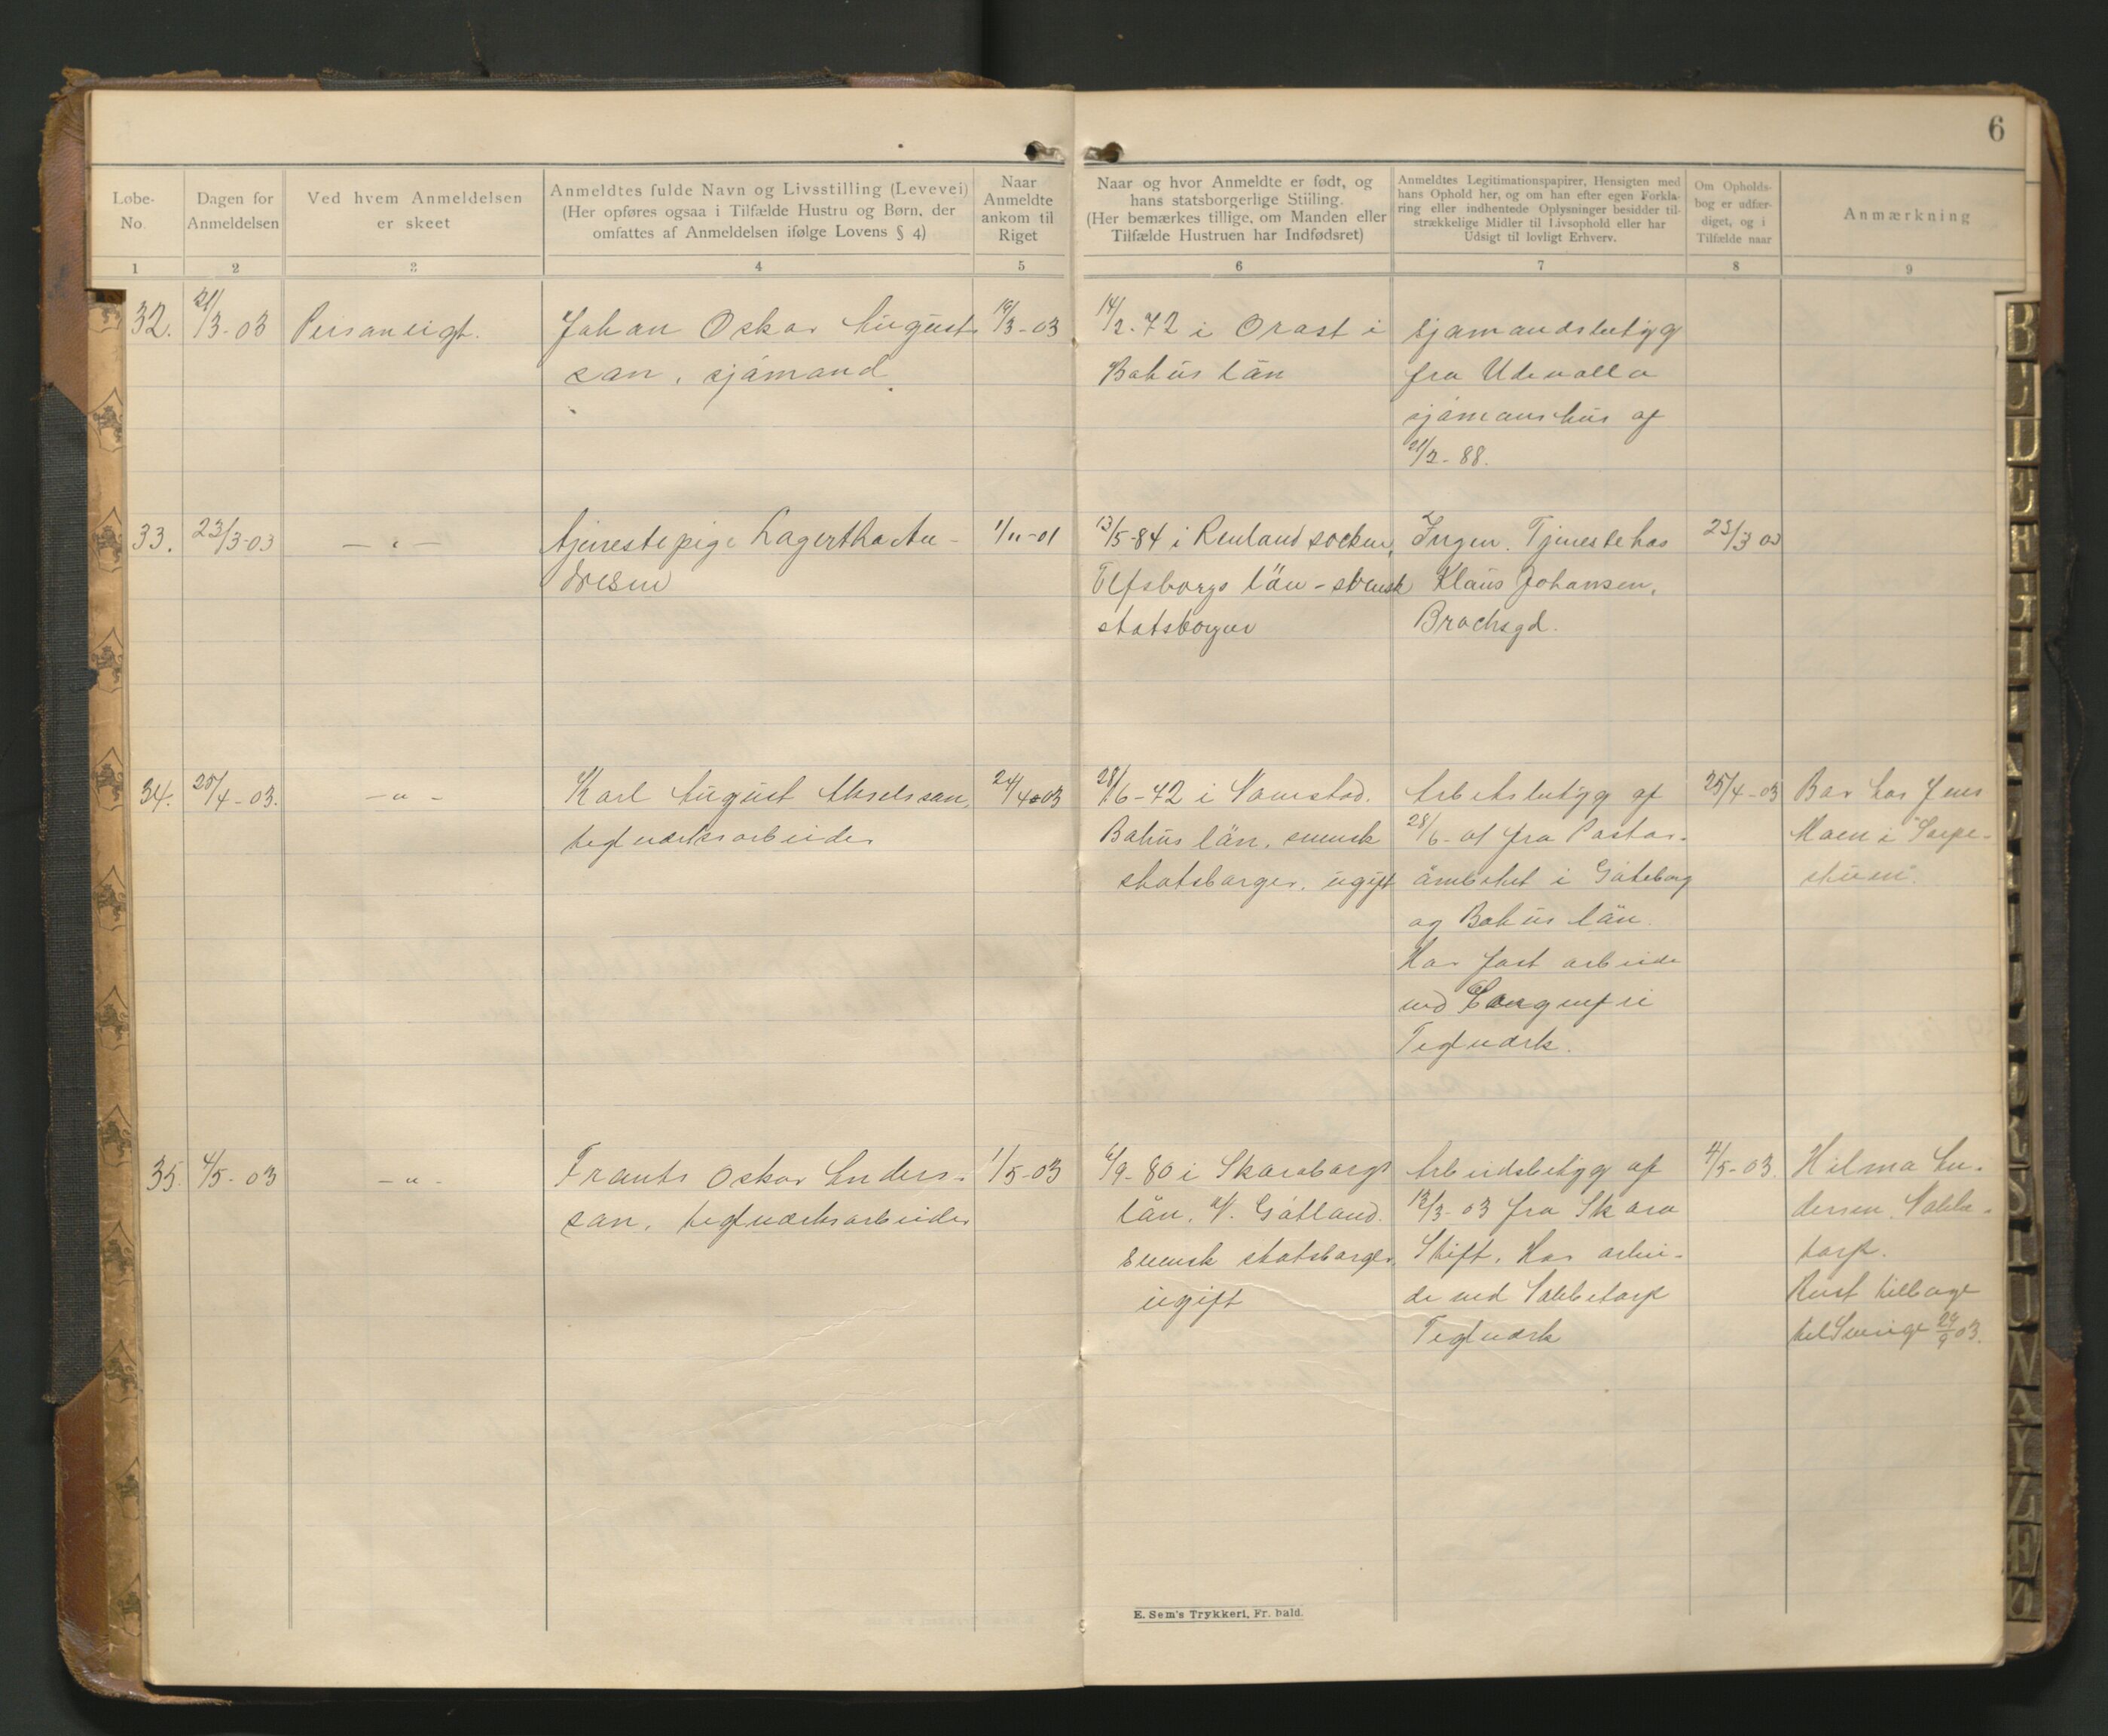 6
Løbe-
No.
Dagen for
Anmeldelsen
Ved hvem Anmeldelsen
er skeet
Anmeldtes fulde Navn og Livsstilling (Levevei)
(Her opføres ogsaa i Tilfælde Hustru og Børn, der
omfattes af Anmeldelsen ifølge Lovens § 4)
Naar
Anmeldte
ankom til
Riget
Naar og hvor Anmeldte er født, og
hans statsborgerlige Stiiling.
(Her bemærkes tillige, om Manden eller
Tilfælde Hustruen har Indfødsret)
Anmeldtes Legitimationspapirer, Hensigten med
hans Ophold her, og om han efter egen Forkla-
ring eller indhentede Oplysninger besidder til-
strækkelige Midler til Livsophold eller har
Udsigt til lovligt Erhverv.
Om Opholds-
bog er udfær-
diget, og i
Tilfælde naar
Anmærkning
1 2 3 4 5 6 7 8 9
32.
21/3-03
Personligt.
Johan Oskar August
son, sjømand
/3-03
14/2-72 i Orost i
Bohus län
Sjømandsbetyg
fra Udevalla
sjømanshus af
21/2-88.
33.
23/3-03
— " —
tjenestepige Lagertha An-
dresen
1/11-01
13/5-84 i socken,
Elfsborgs län - svensk
statsborger
Ingen. Tjeneste hos
Klaus Johansen,
Brochsgd.
23/3 03
34.
25/4-03.
— " —
Karl August Akselsson,
teglværksarbeider
24/4-03
28/6-72 i
Bohus län, svensk
statsborger, ugift
Arbetsbetyg af
28/6-01 fra Pastor-
ämbetet i Gøteborg
og Bohus län.
Har fast arbeide
ved
Teglværk.
25/4-03
Bor hos Jens
Moen i
35.
4/5-03
— " —
Frants Oskar Anders-
son, teglværksarbeider
1/5-03
6/9-80 i Skaraborgs
län, V. Gøtland.
Svensk statsborger,
ugift
Arbeidsbetyg af
13/3-03 fra Skara
Stift. Har arbei-
de ved Labbetorp
Teglværk
4/5-03.
Hilma An-
dersen, Labbe-
torp.
Reist tilbage
til Sverige 29/9 03.
E. Sem's Trykkeri, Fr. hald.